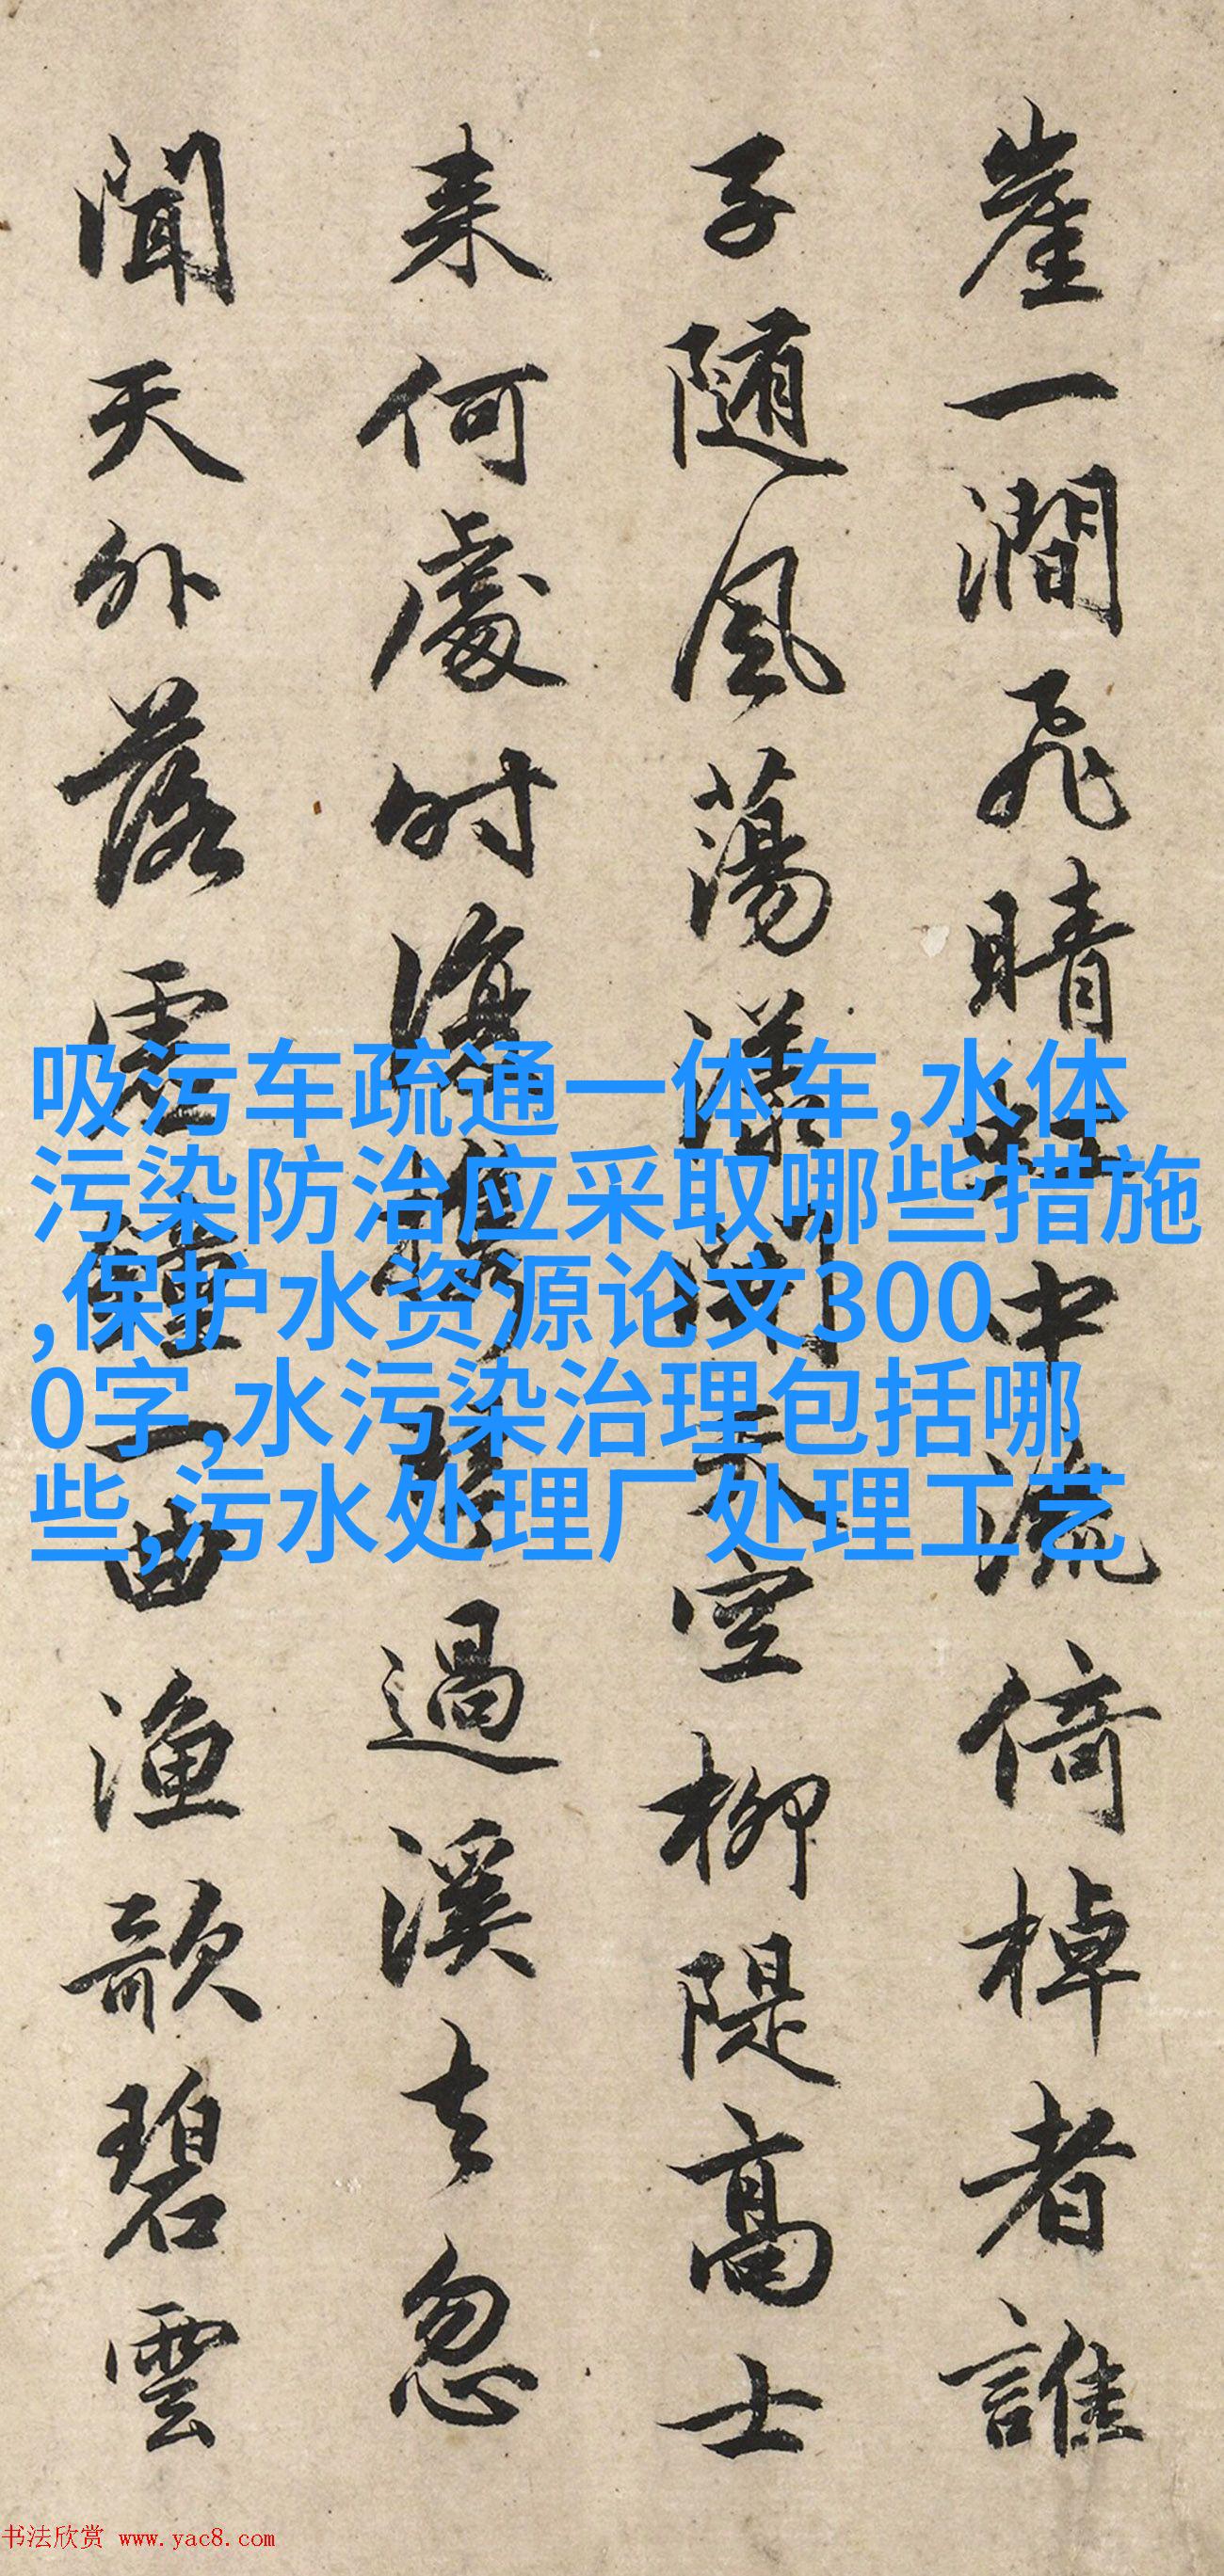 崖一澗飛晴虹中流倚棹者誰
子随風蕩漾空柳隄高士
来何處时復携琴過溪去忽
聞天外落一曲漁歌碧雲
吸污车疏通一体车,水体
污染防治应采取哪些措施
,保护水资源论文300
0字,水污染治理包括哪
些,污水处理厂处理工艺
书法欣赏 www.yac8.com